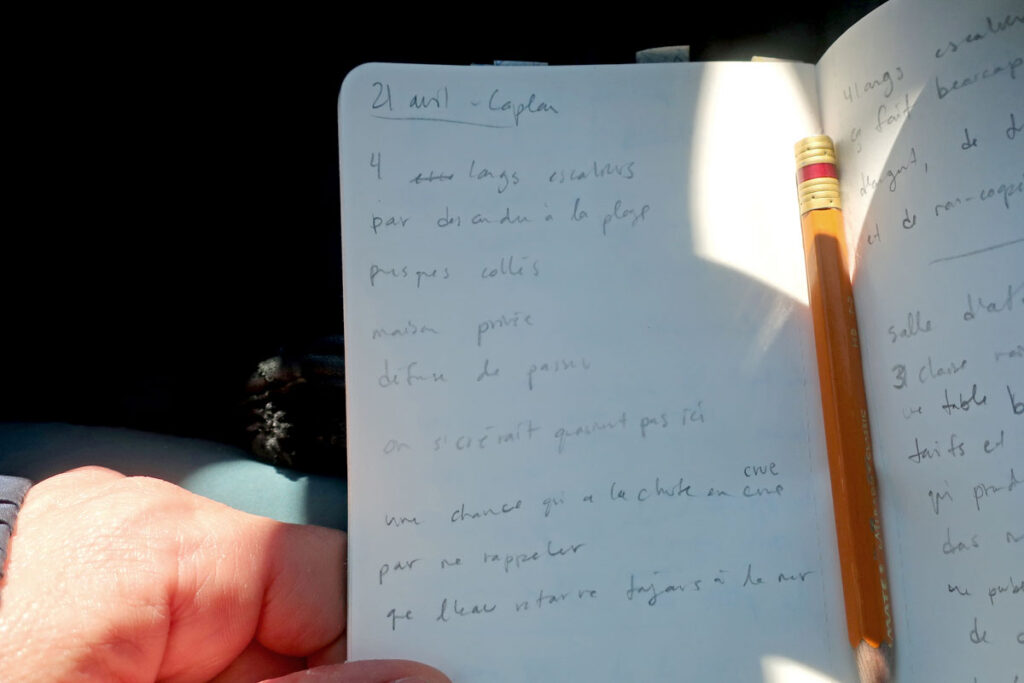 21 avril - Caplan
4 longs escaliers
par descendre à la plage
presques collés
maison privée
défense de passer
on s'croirait quasiment pas ici
une chance qu'y a la chute en crue
crue
par me rappeler
que l'eau retourne toujours à la mer
4 longs escaliers
ça fait beaucoup
d'argent, de
et de
salle d'at
3 chaise
une table b
tarifs et
qui prend
dans
me
de